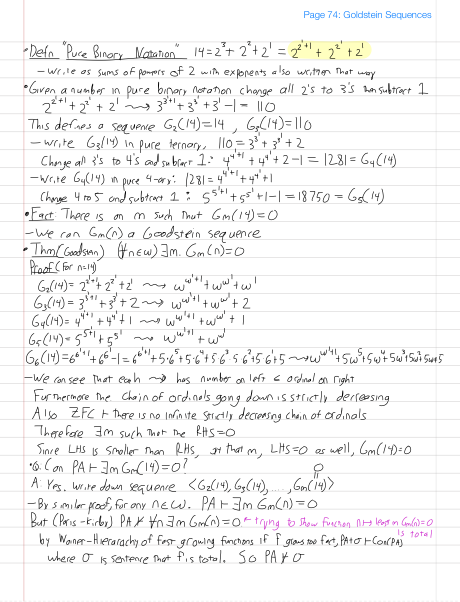 Page 74: Goldstein Sequences
• Defn "Pure Binary Notation" 14 = 2³ + 2² + 2¹ = 2^{2^{1}+1} + 2^{2^{1}} + 2¹
- Write as sums of powers of 2 with exponents also written that way
• Given a number in pure binary notation change all 2's to 3's then subtract 1
2^{2^{1}+1} + 2^{2^{1}} + 2¹ ⇝ 3^{3^{1}+1} + 3^{3^{1}} + 3¹ - 1 = 110
This defines a sequence G₂(14) = 14, G₃(14) = 110
- Write G₃(14) in pure ternary, 110 = 3^{3^{1}+1} + 3^{3^{1}} + 2
Change all 3's to 4's and subtract 1: 4^{4^{1}+1} + 4^{4^{1}} + 2 - 1 = 1281 = G₄(14)
- Write G₄(14) in pure 4-ary: 1281 = 4^{4^{1}+1} + 4^{4^{1}} + 1
Change 4 to 5 and subtract 1: 5^{5^{1}+1} + 5^{5^{1}} + 1 - 1 = 18750 = G₅(14)
• Fact There is an m such that Gm(14) = 0
- We call Gm(n) a Goodstein sequence
• Thm (Goodstein) (∀n∈ω) ∃m Gm(n) = 0
Proof (for n=14)
G₂(14) = 2^{2^{1}+1} + 2^{2^{1}} + 2¹ ⇝ ω^{ω^{1}+1} + ω^{ω^{1}} + ω¹
G₃(14) = 3^{3^{1}+1} + 3^{3^{1}} + 2 ⇝ ω^{ω^{1}+1} + ω^{ω^{1}} + 2
G₄(14) = 4^{4^{1}+1} + 4^{4^{1}} + 1 ⇝ ω^{ω^{1}+1} + ω^{ω^{1}} + 1
G₅(14) = 5^{5^{1}+1} + 5^{5^{1}} ⇝ ω^{ω^{1}+1} + ω^{ω^{1}}
G₆(14) = 6^{6^{1}+1} + 6^{6^{1}} - 1 = 6^{6^{1}+1} + 5·6⁵ + 5·6⁴ + 5·6³ + 5·6² + 5·6¹ + 5 ⇝ ω^{ω^{1}+1} + 5ω⁵ + 5ω⁴ + 5ω³ + 5ω² + 5ω + 5
- We can see that each ⇝ has number on left ≤ ordinal on right
Furthermore the chain of ordinals going down is strictly decreasing
Also ZFC ⊢ there is no infinite strictly decreasing chain of ordinals
Therefore ∃m such that the RHS = 0
Since LHS is smaller than RHS, at that m, LHS = 0 as well, Gm(14) = 0
• Q: Can PA ⊢ ∃m Gm(14) = 0?
0
A: Yes. Write down sequence ⟨G₂(14), G₃(14), ...., Gm(14)⟩
- By similar proof, for any n∈ω. PA ⊢ ∃m Gm(n) = 0
But (Paris-Kirby) PA ⊬ ∀n ∃m Gm(n) = 0 ← trying to show function n ↦ least m Gm(n) = 0 is total
by Wainer-Hierarchy of fast growing functions if f grows too fast, PA + σ ⊢ Con(PA)
where σ is sentence that f is total. So PA ⊬ σ